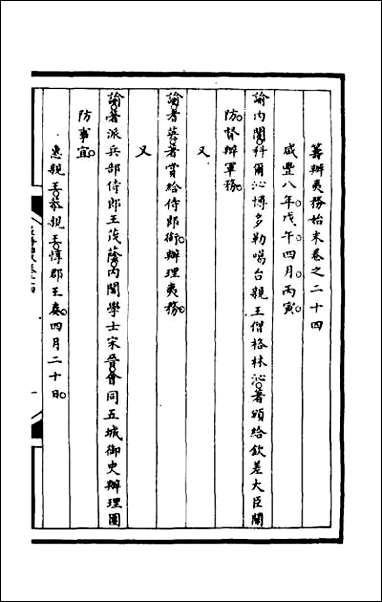 籌辦夷務始末卷之二十四
咸豐八年戊午四月丙寅
諭內閣科爾沁博多勒噶台親王僧格林沁著頒給欽差大臣關
防督辦軍務
又
諭耆英著賞給侍郎銜辦理夷務
又
諭著派兵部侍郎王茂蔭內閣學士宋晉會同五城御史辦理團
防事宜
惠親王恭親王惇郡王奏四月二十日